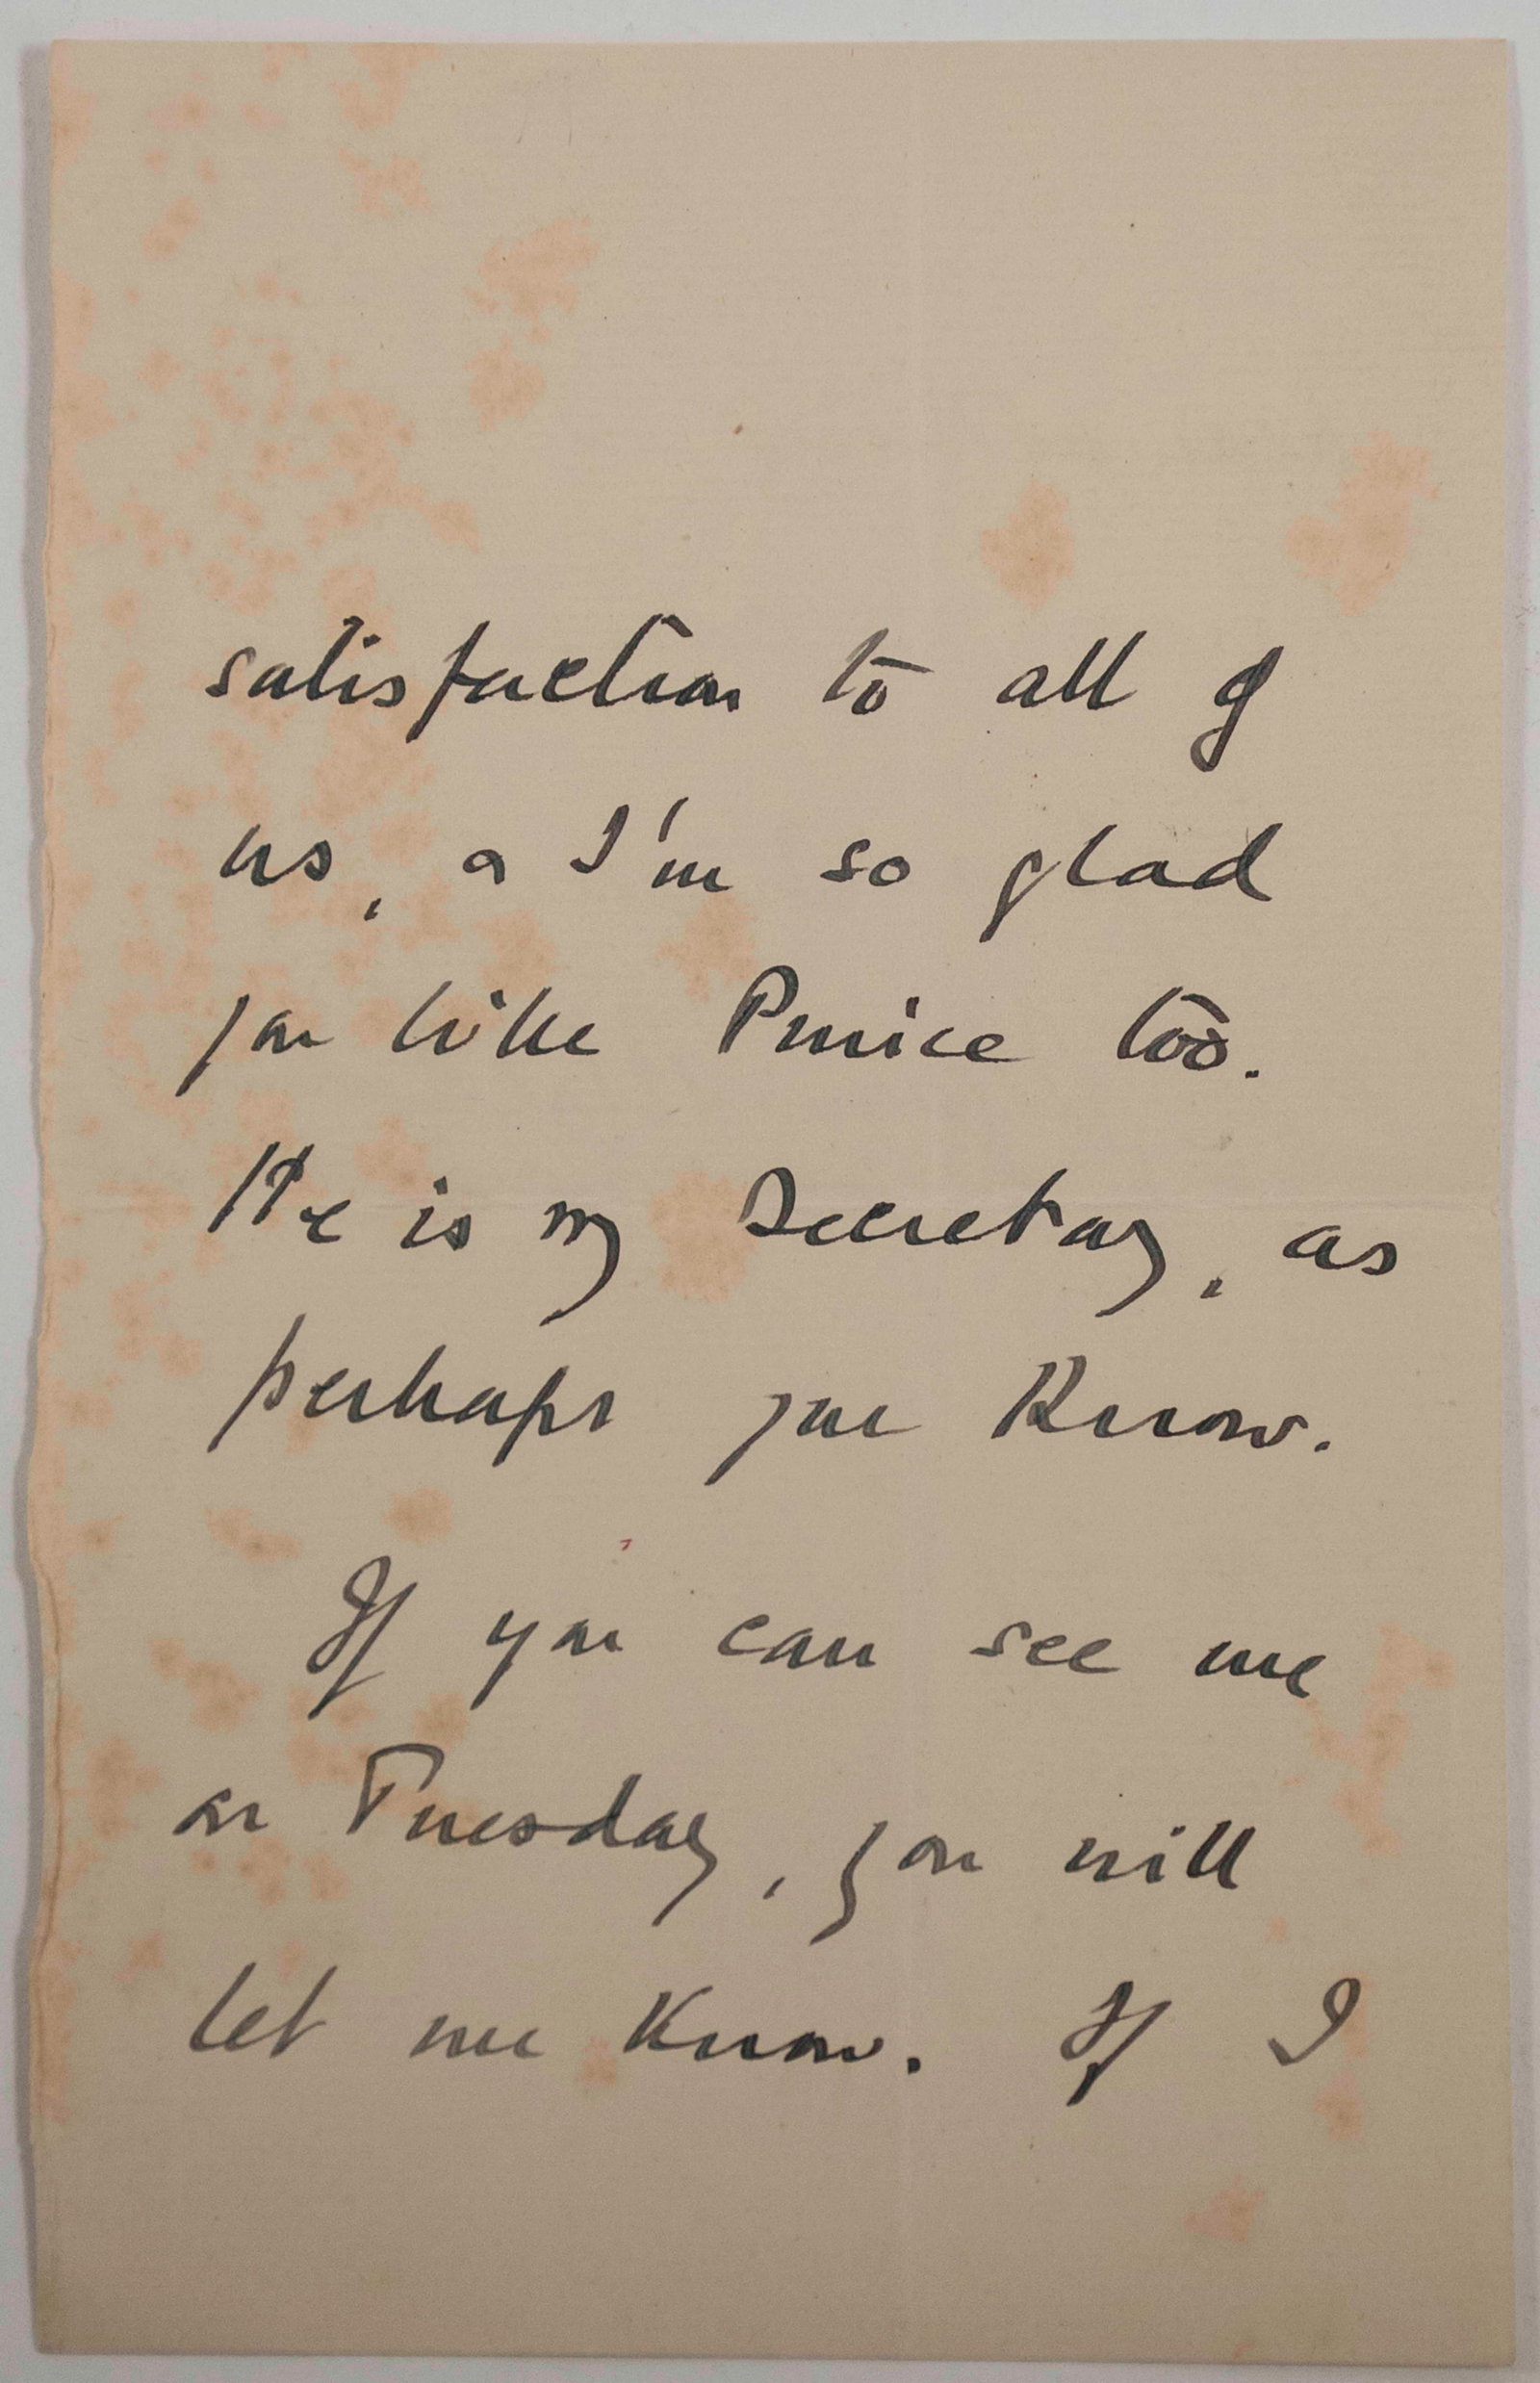 satisfaction to all of
us, & I'm so glad
you like too.
He is my Secretary, as
perhaps you know.
If you can see me
on Tuesday, you will
let me know. If I